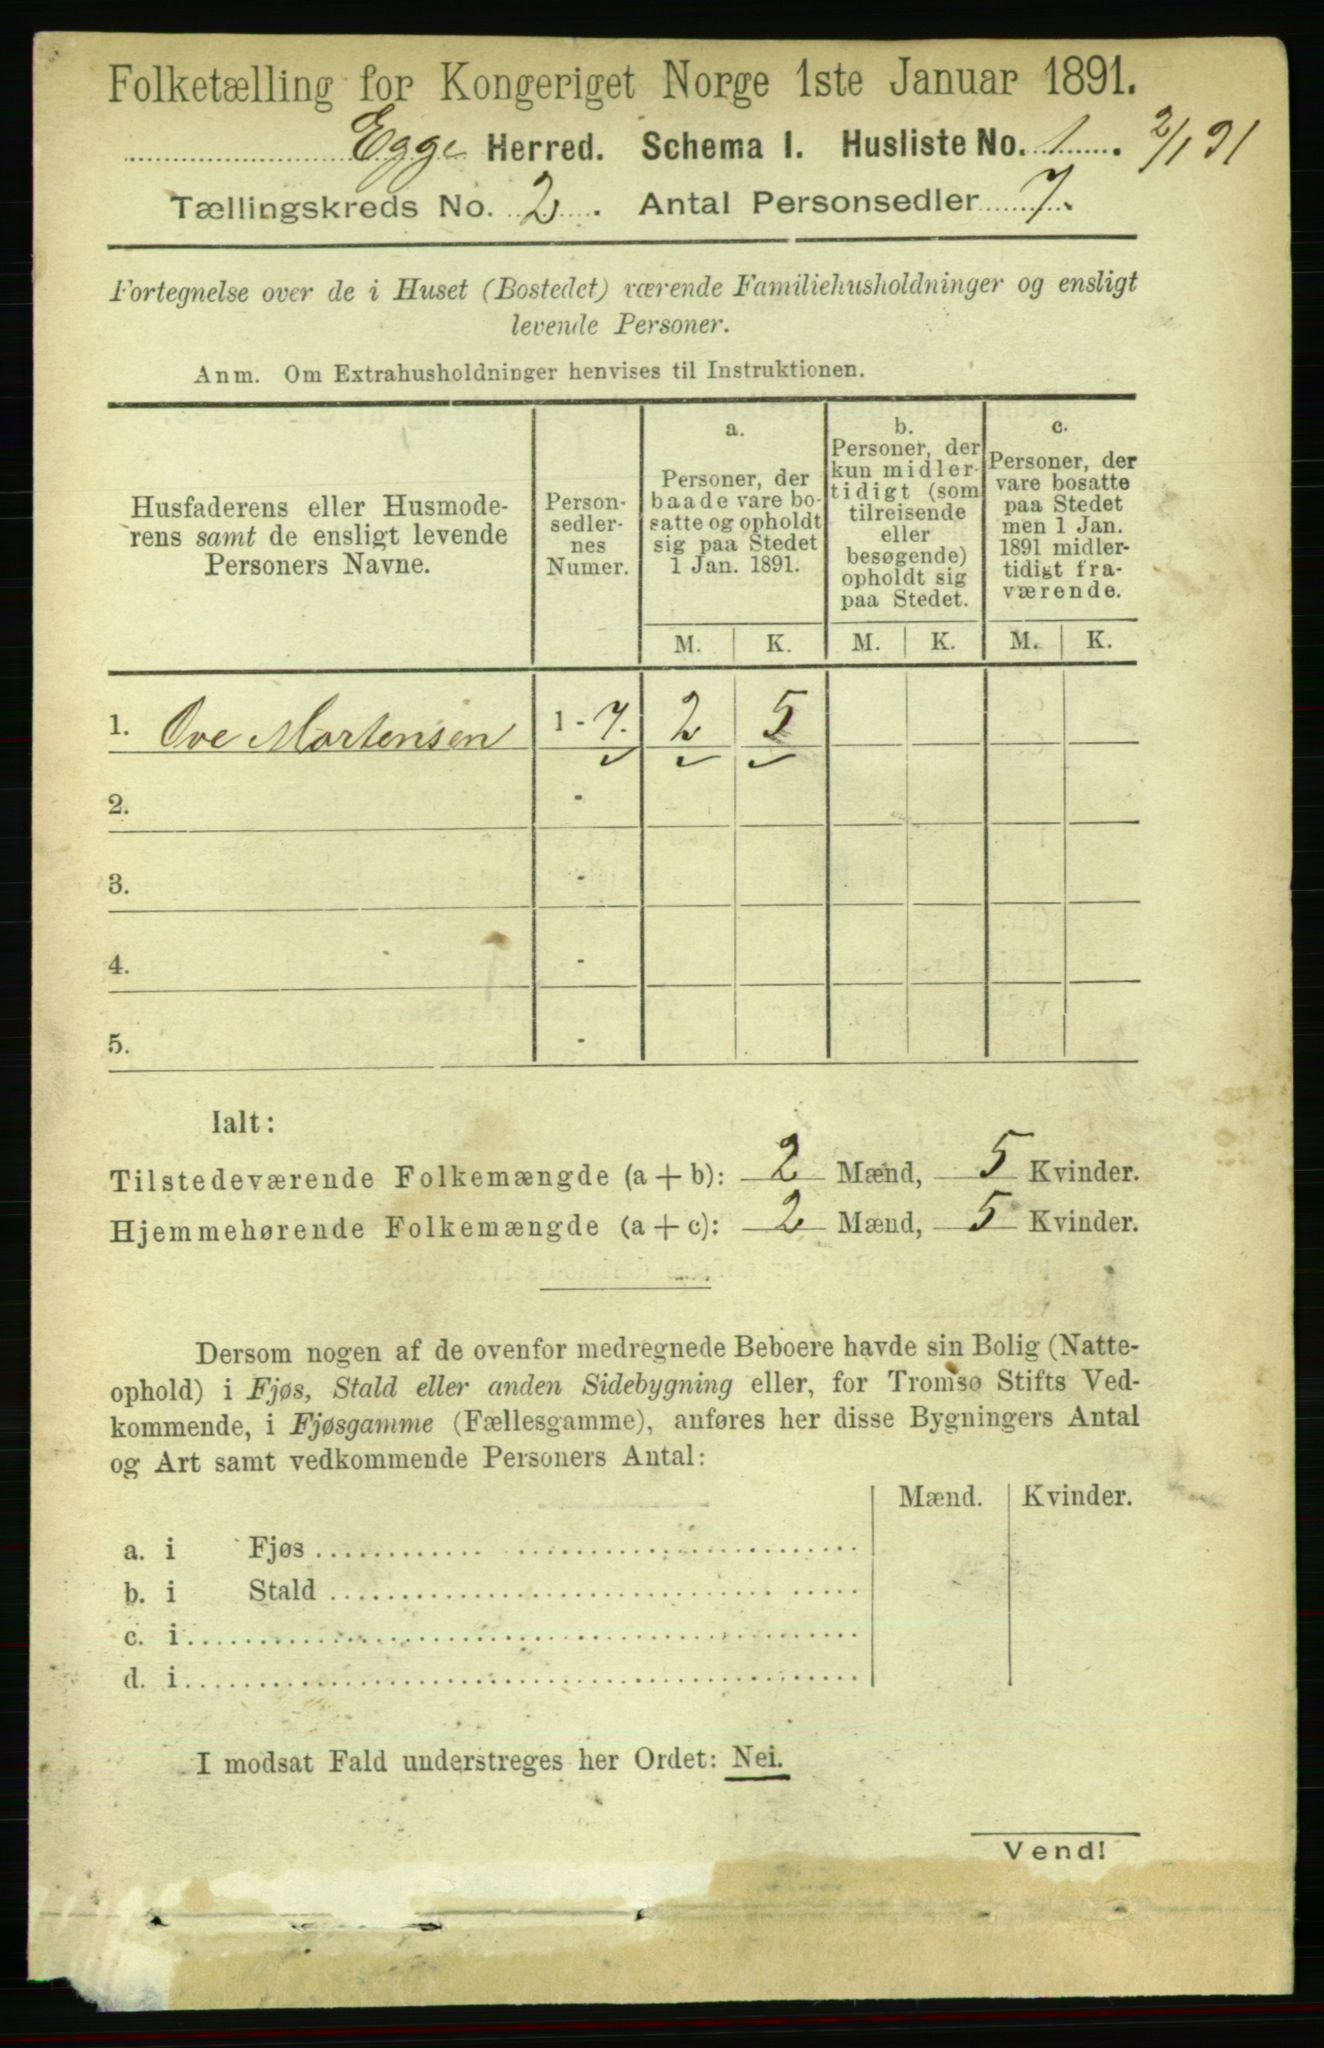 Folketælling for Kongeriget Norge 1ste Januar 1891.
Egge Herred. Schema I. Husliste No. 1. 2/1 91
Tællingskreds No. 2. Antal Personsedler 7.
Fortegnelse over de i Huset (Bostedet) værende Familiehusholdninger og ensligt
levende Personer.
Anm. Om Extrahusholdninger henvises til Instruktionen.
Husfaderens eller Husmode-
rens samt de ensligt levende
Personers Navne.
Person-
sedler-
nes
Numer.
a.
Personer, der
baade vare bo-
satte og opholdt
sig paa Stedet
1 Jan. 1891.
b.
Personer, der
kun midler-
tidigt (som
tilreisende
eller
besøgende)
opholdt sig
paa Stedet.
c.
Personer, der
vare bosatte
paa Stedet
men 1 Jan.
1891 midler-
tidigt fra-
værende.
M. K. M. K. M. K.
1. Ove Mortensen 1 - 7. 2 5
2. -
3. -
4. -
5. -
Ialt:
Tilstedeværende Folkemængde (a + b): 2 Mænd, 5 Kvinder.
Hjemmehørende Folkemængde (a + c): 2 Mænd, 5 Kvinder.
Dersom nogen af de ovenfor medregnede Beboere havde sin Bolig (Natte-
ophold) i Fjøs, Stald eller anden Sidebygning eller, for Tromsø Stifts Ved-
kommende, i Fjøsgamme (Fællesgamme), anføres her disse Bygningers Antal
og Art samt vedkommende Personers Antal:
Mænd. Kvinder.
a. i Fjøs
b. i Stald
c. i
d. i
I modsat Fald understreges her Ordet: Nei.
Vend!